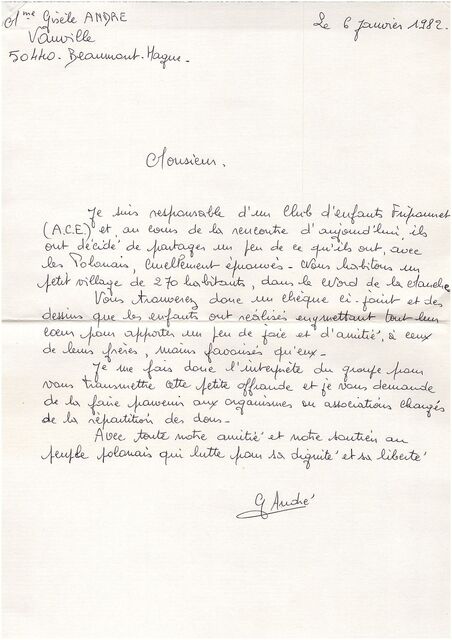 Mme Gisèle ANDRE
Vauville
50440. Beaumont-Hague.
Le 6 janvier 1982.
Monsieur.
Je suis responsable d'un Club d'enfants Fripounet
(A.C.E) et, au cours de la rencontre d'aujourd'hui, ils
ont décidé de partager un peu de ce qu'ils ont, avec
les Polonais, cruellement éprouvés - Nous habitons un
petit village de 270 habitants, dans le Nord de la Manche
Vous trouverez donc un chèque ci-joint et des
dessins que les enfants ont réalisés en y mettant tout leur
cœur pour apporter un peu de joie et d'amitié, à ceux
de leurs frères, moins favorisés qu'eux -
Je me fais donc l'interprète du groupe pour
vous transmettre cette petite offrande et je vous demande
de la faire parvenir aux organismes ou associations chargés
de la répartition des dons -
Avec toute notre amitié et notre soutien au
peuple polonais qui lutte pour sa dignité et sa liberté
G André